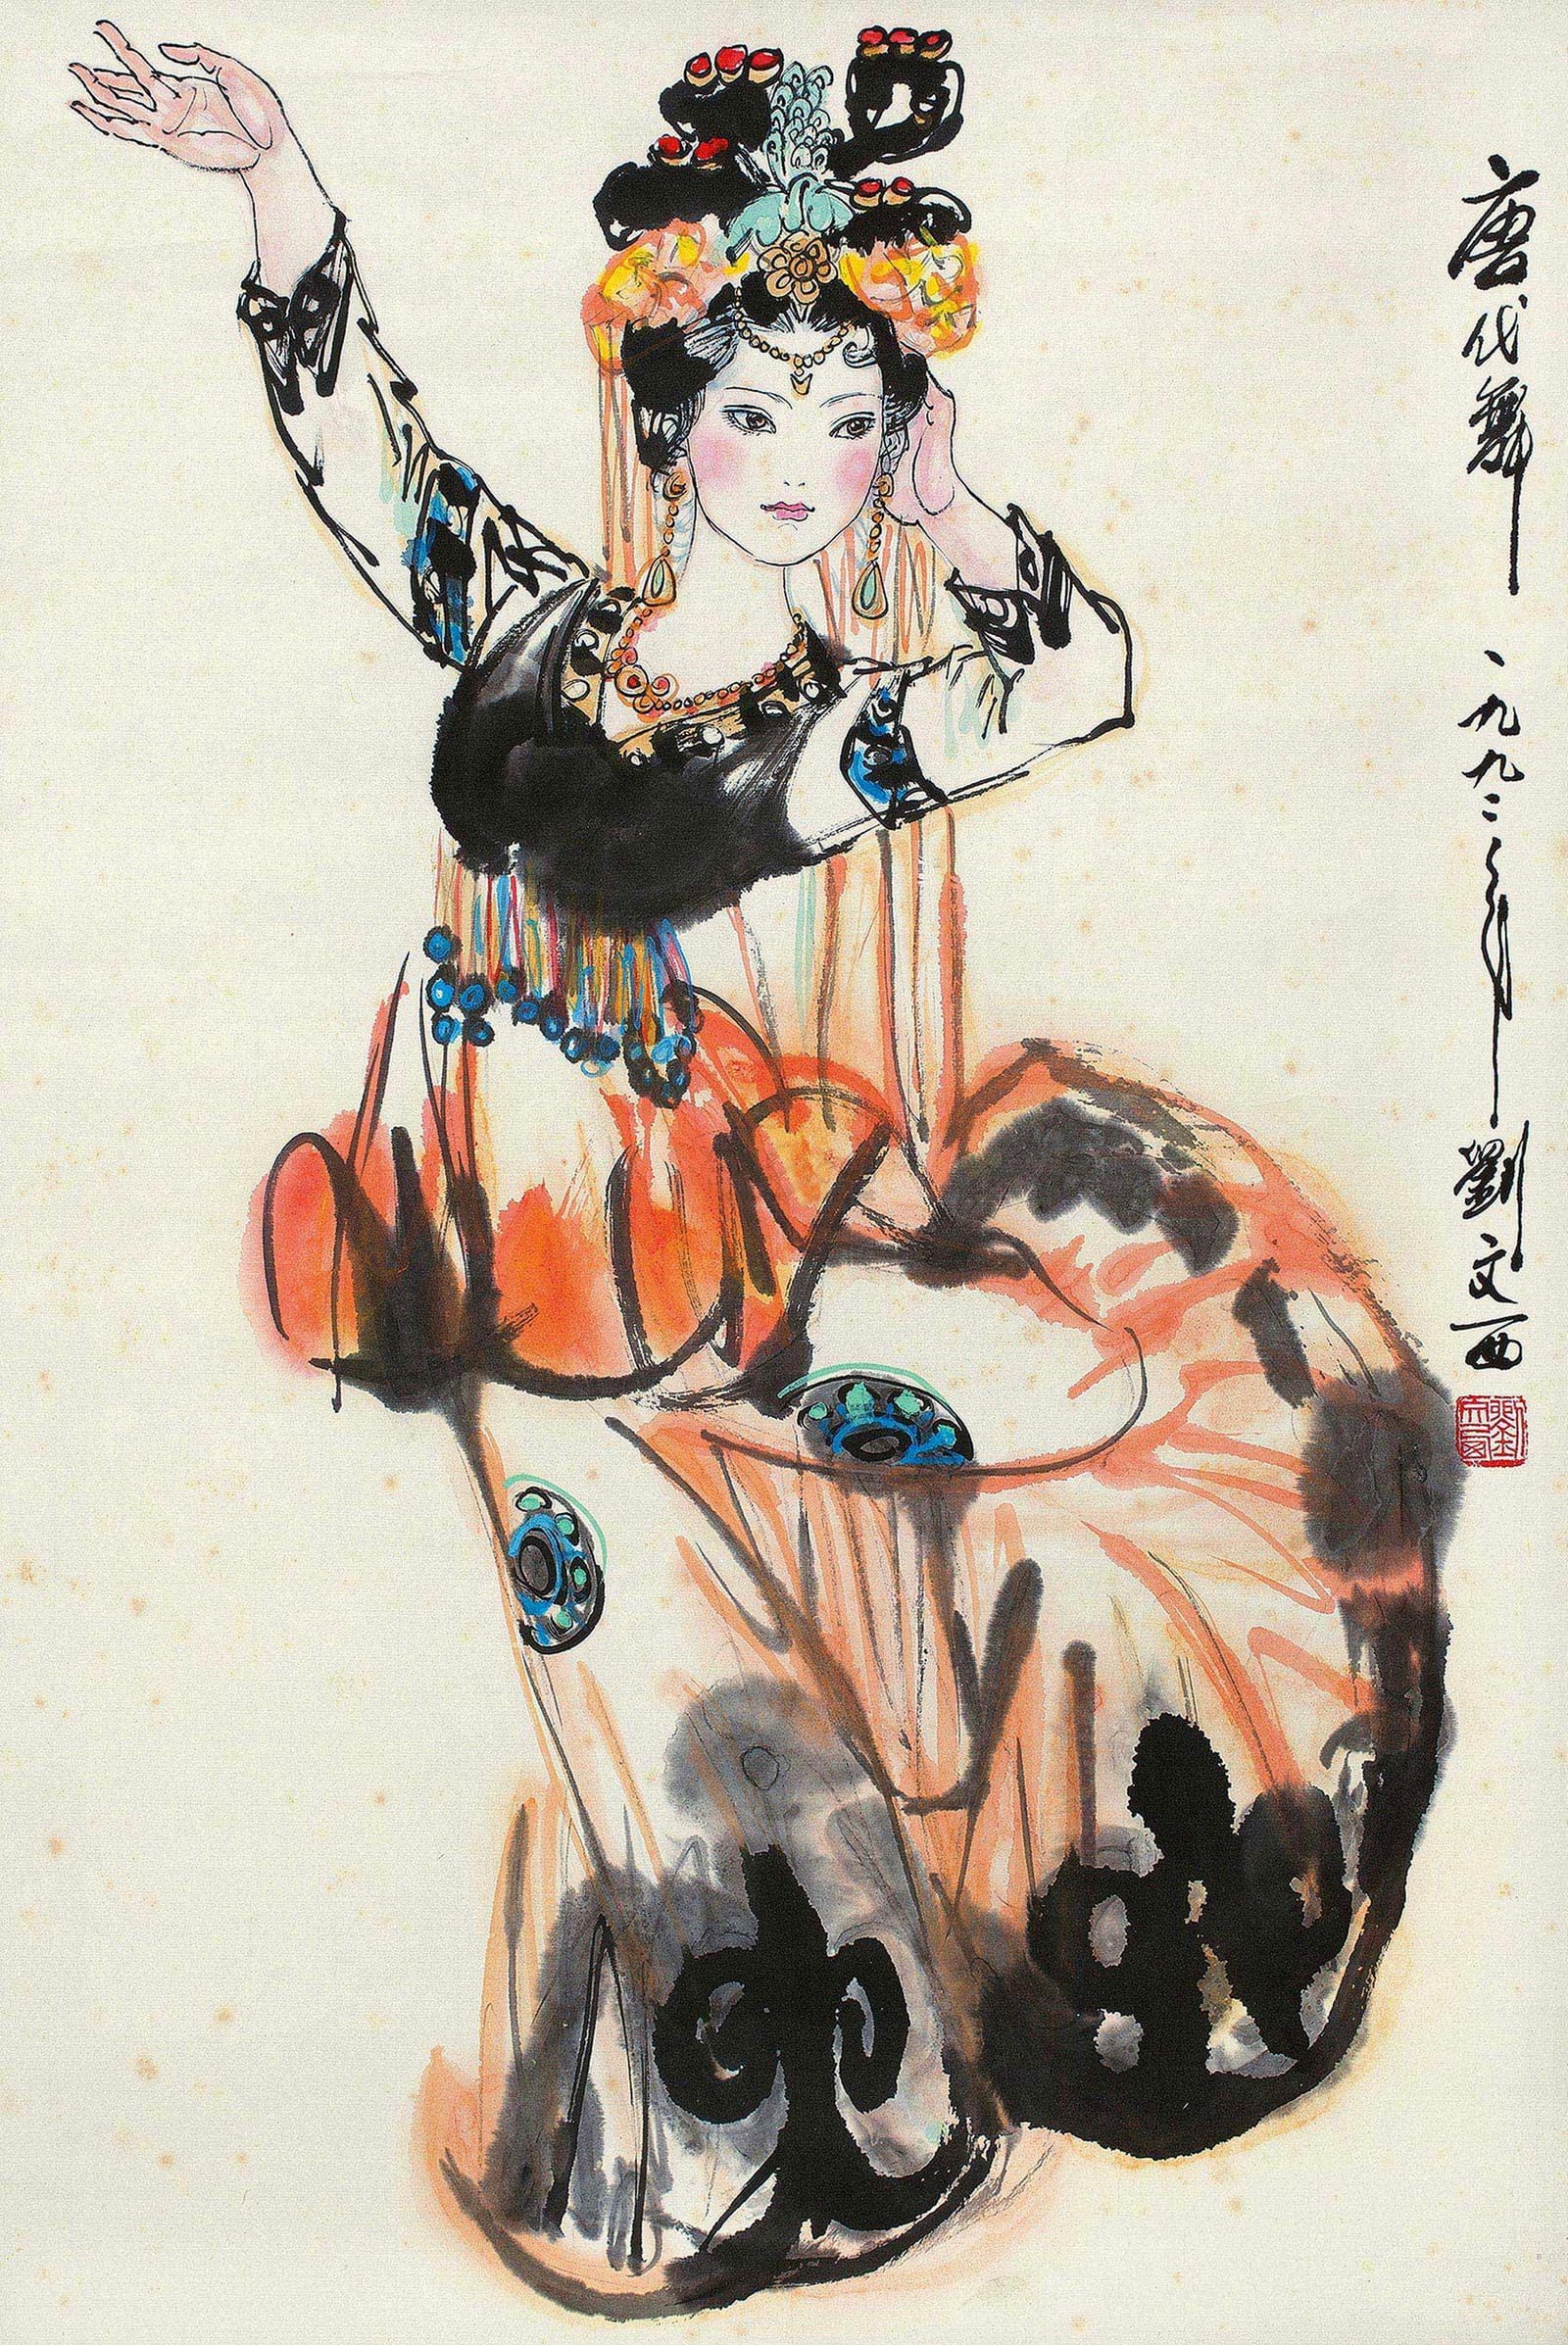 唐代舞 一九九二年 劉文西
劉文西